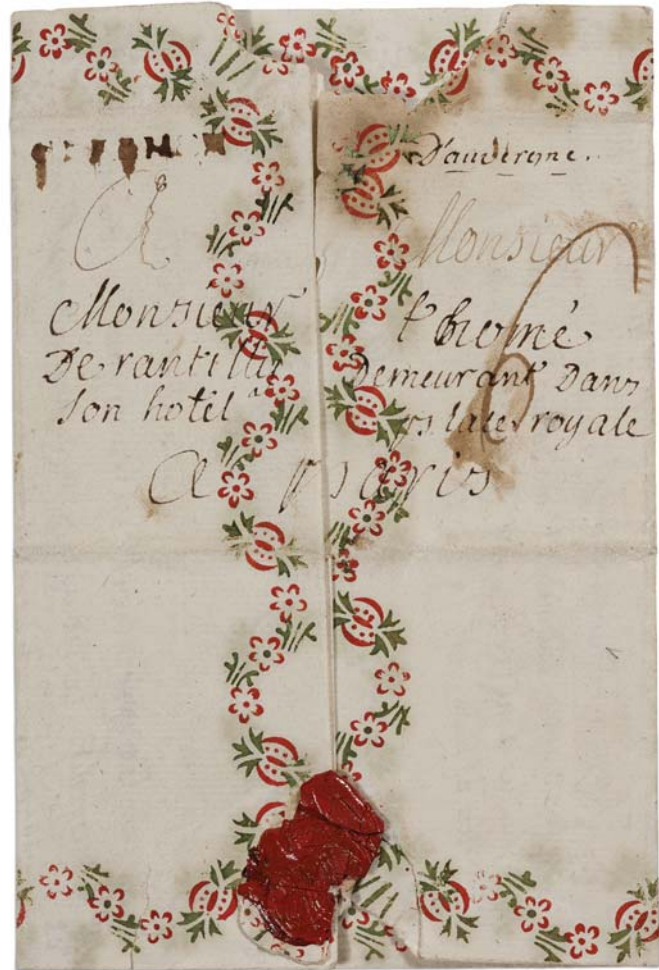 D'auvergne.
A Monsieur
Monsieur thomé
De rantilly Demeurant Dans
son hotel place royale
A paris
6